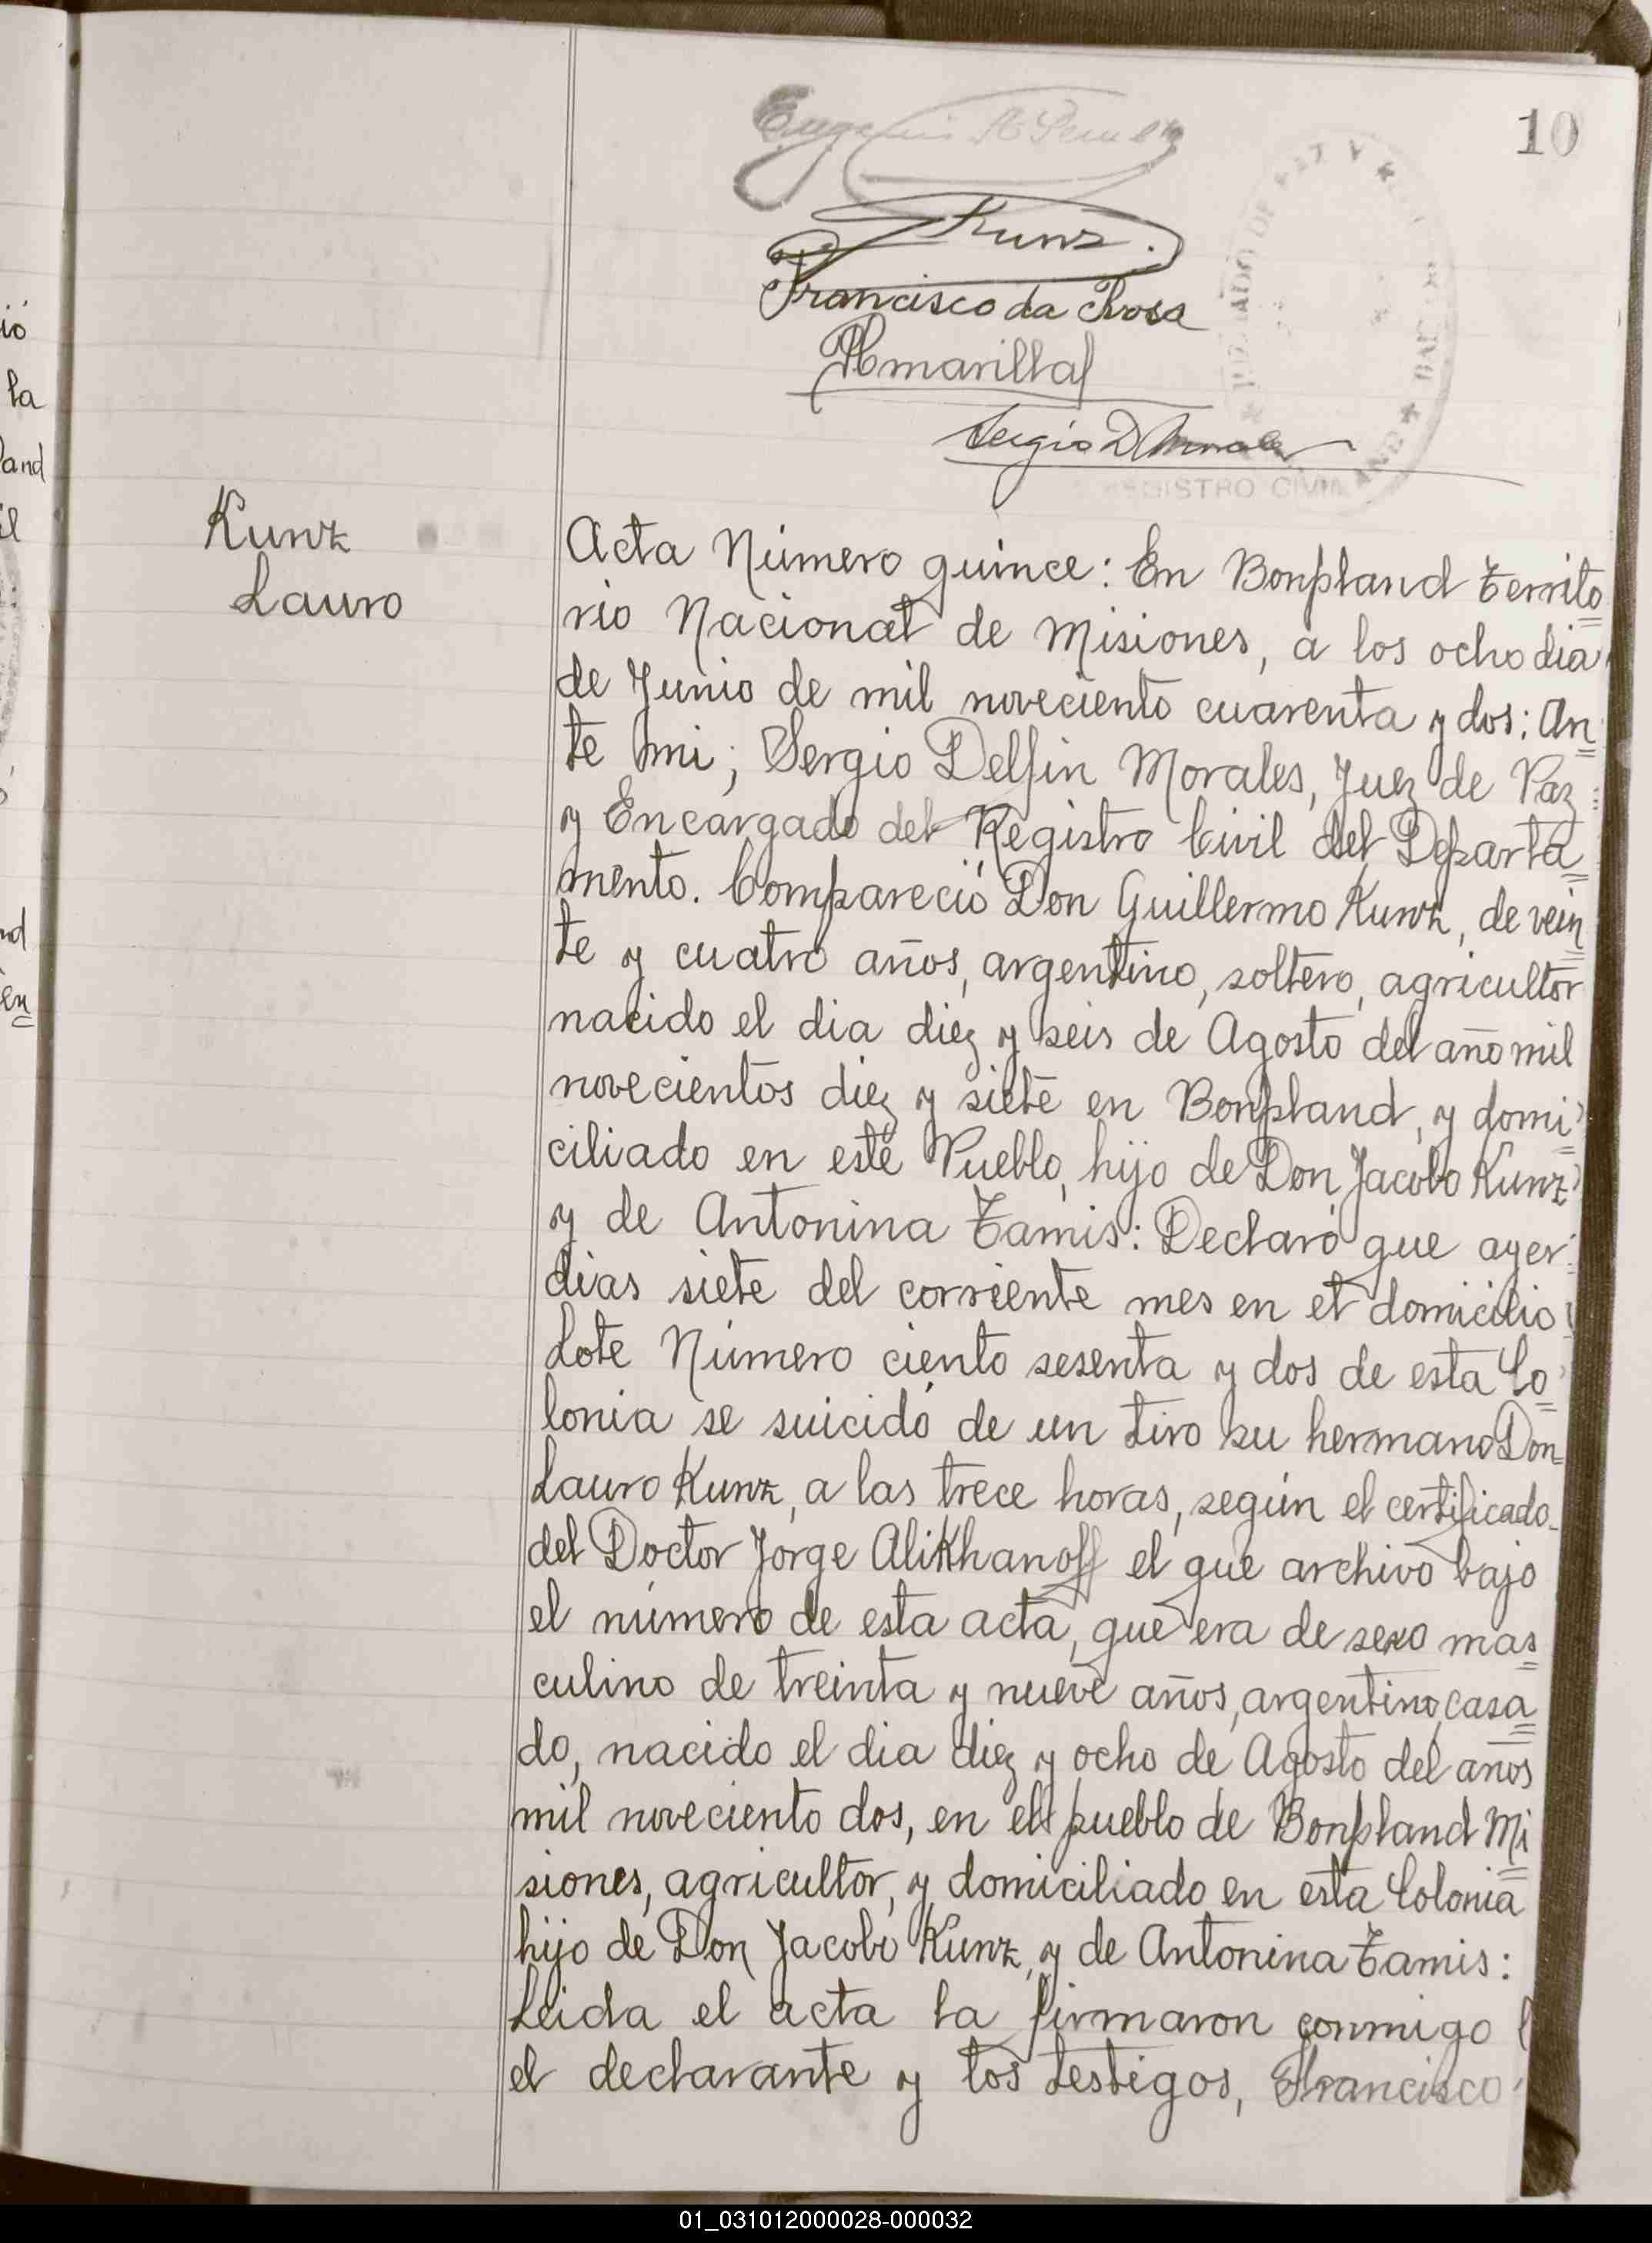 10
Kunz.
Francisco da Rosa
Amarilla
Sergio D Morales
REGISTRO CIVIL
Kunz
Lauro
Acta Número quince: En Bonpland Territo
rio Nacional de Misiones, a los ocho dia
de Junio de mil noveciento cuarenta y dos: An
te mi; Sergio Delfin Morales, Juez de Paz
y Encargado del Registro Civil del Departa
mento. Compareció Don Guillermo Kunz, de vein
te y cuatro años, argentino, soltero, agricultor
nacido el dia diez y seis de Agosto del año mil
novecientos diez y siete en Bonpland, y domi
ciliado en este Pueblo, hijo de Don Jacobo Kunz
y de Antonina Tamis: Declaró que ayer
dias siete del corriente mes en el domicilio
Lote Número ciento sesenta y dos de esta Co
lonia se suicidó de un tiro su hermano Don
Lauro Kunz, a las trece horas, según el certificado
del Doctor Jorge Alikhanoff el que archivo bajo
el número de esta acta, que era de sexo mas
culino de treinta y nueve años, argentino, casa
do, nacido el dia diez y ocho de Agosto del años
mil noveciento dos, en el pueblo de Bonpland Mi
siones, agricultor, y domiciliado en esta Colonia
hijo de Don Jacobo Kunz, y de Antonina Tamis:
Leida el acta la firmaron conmigo
el declarante y los testigos, Francisco
ió
la
and
il
nd
en
01_031012000028-000032